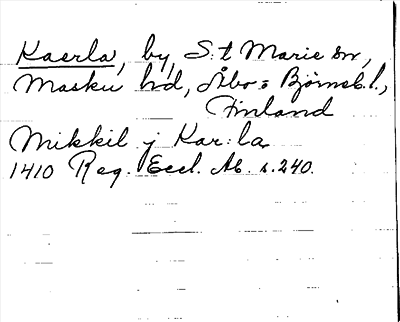 Kaerla, by, S:t Marie sn,
Masku hd, Åbo o Björneb. l.,
Finland
Mikkil j Kar:la
1410 Reg. Eccl. Ab. s. 240.